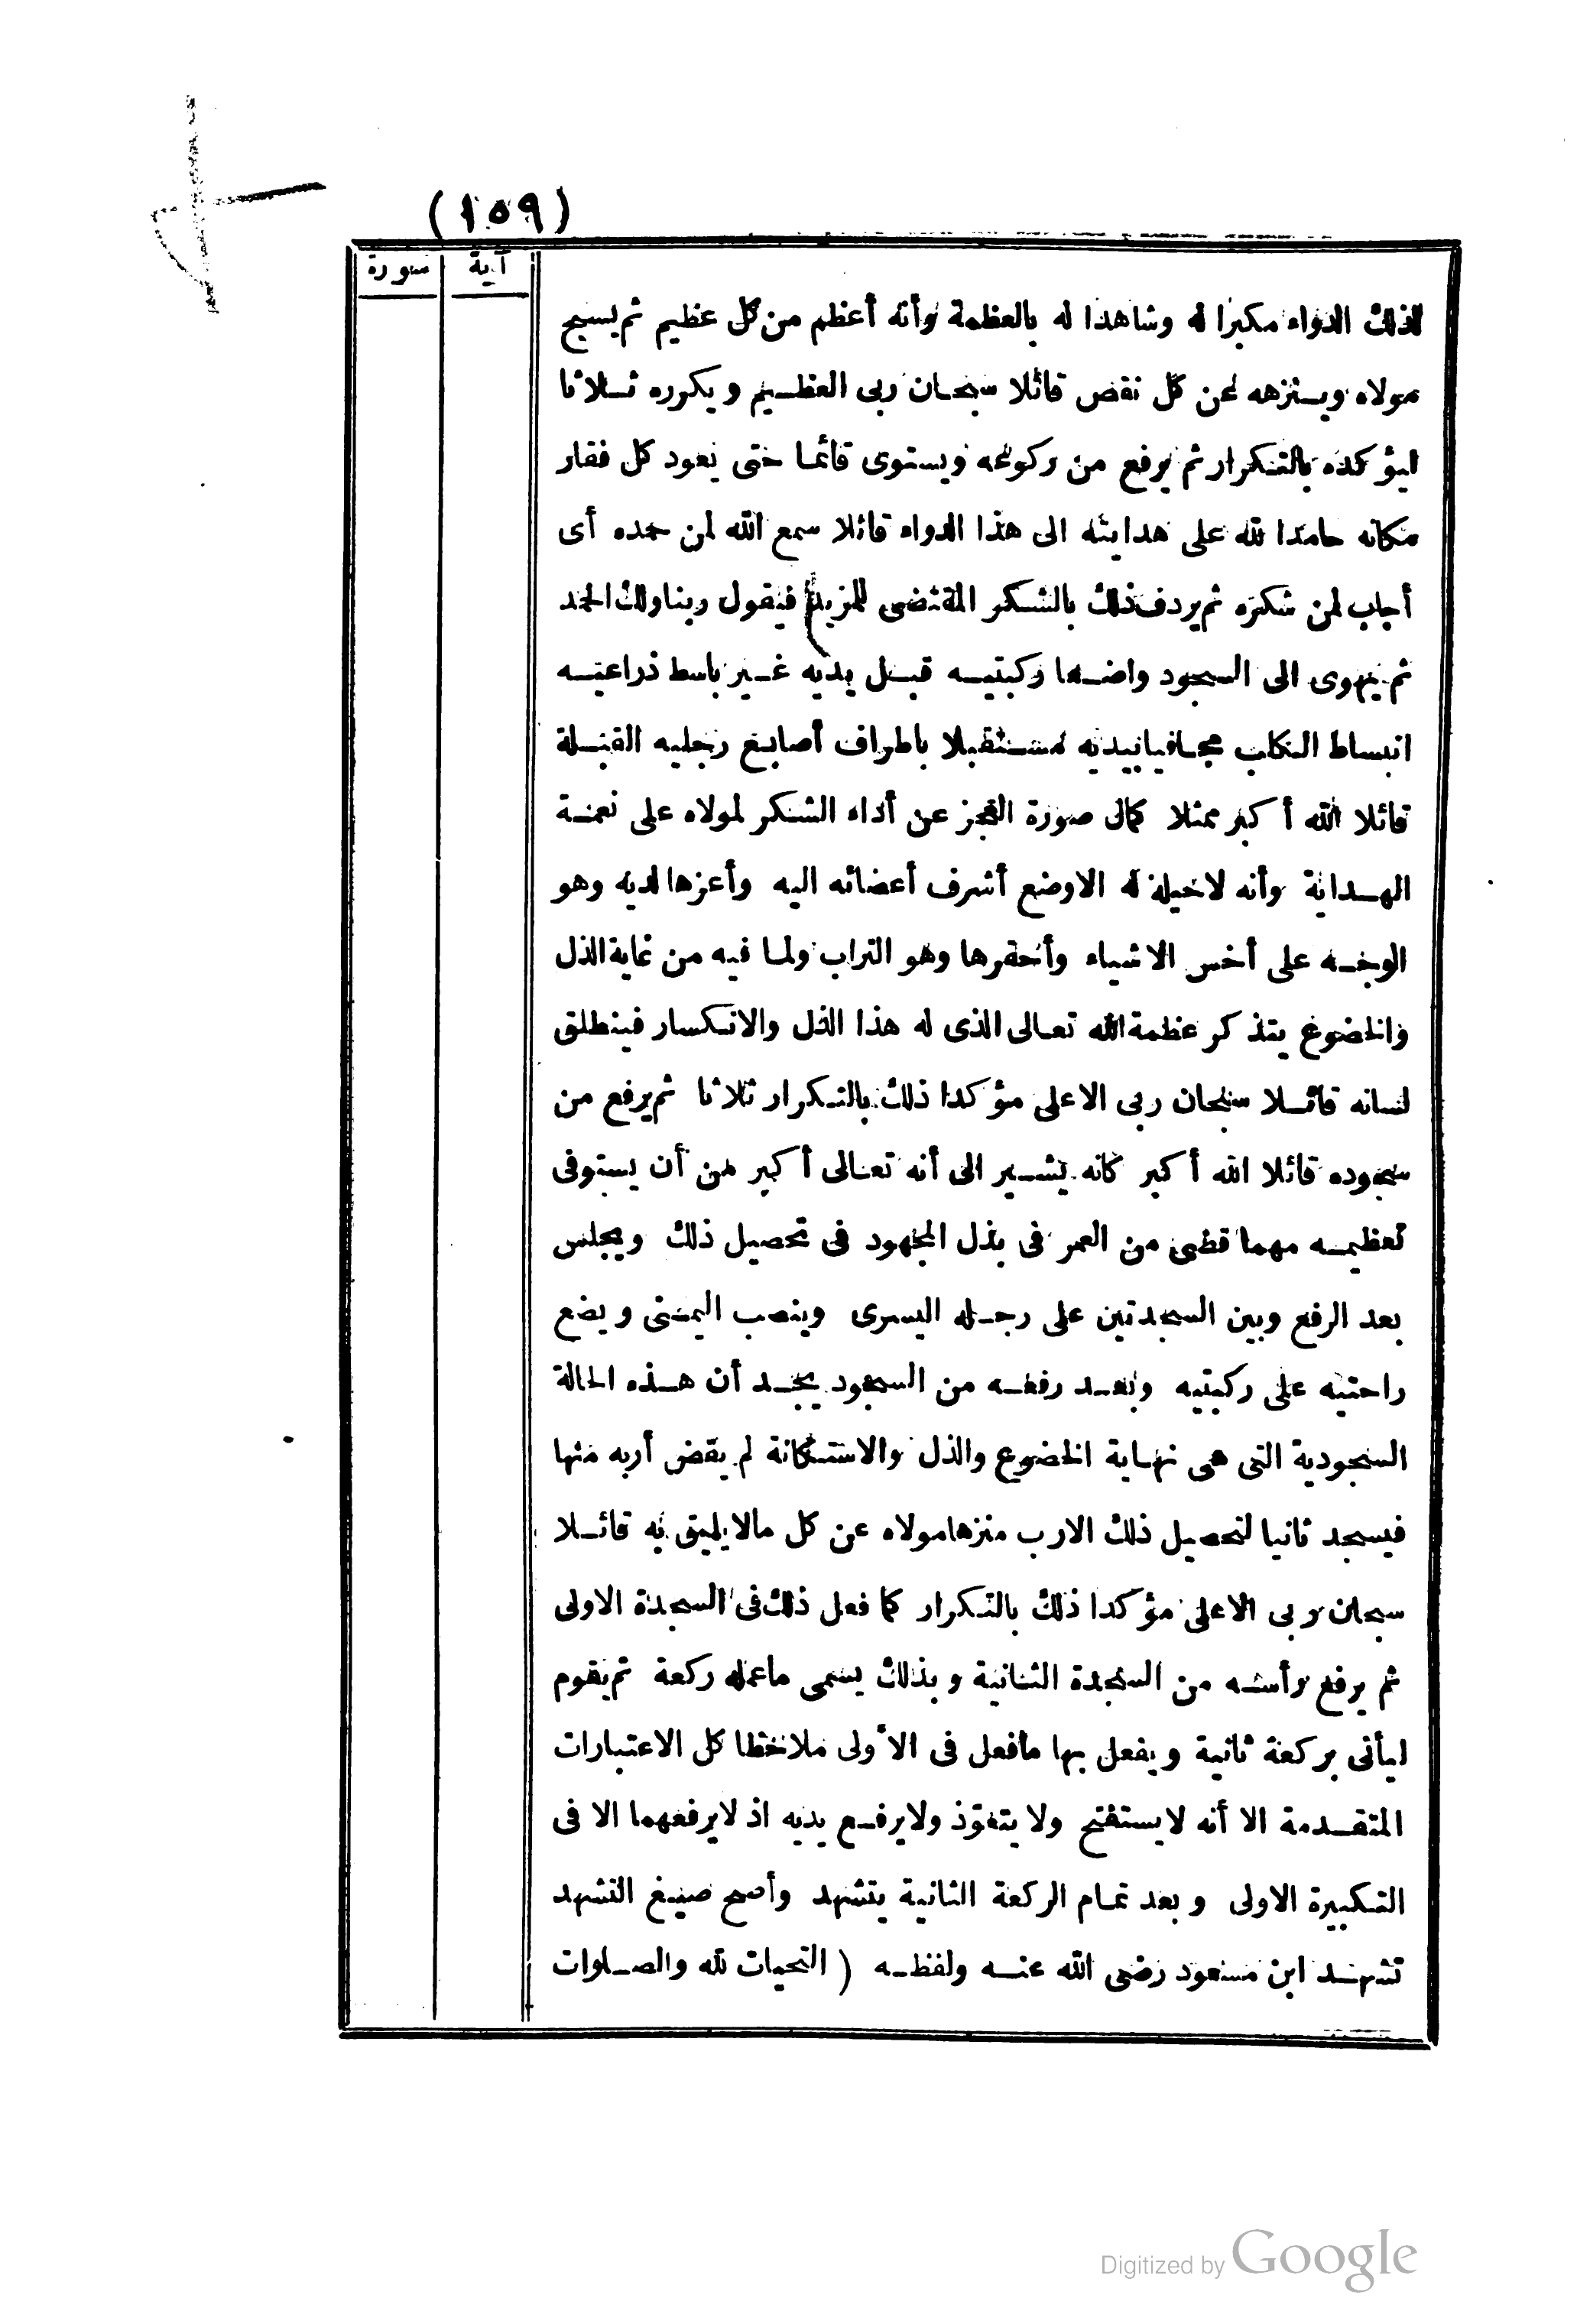 (١٥٩)
آية سورة
لذلك الدواء مكبرا له وشاهدا له بالعظمة وأنه أعظم من كل عظيم ثم يسبح
مولاه وينزهه عن كل نقص قائلا سبحان ربى العظيم ويكرره ثلاثا
ليؤكده بالتكرار ثم يرفع من ركوعه ويستوى قائما حتى يعود كل فقار
مكانه حامدا لله على هدايته الى هذا الدواء قائلا سمع الله لمن حمده أى
أجاب لمن شكره ثم يردف ذلك بالشكر المقتضى للمزيد فيقول ربنا ولك الحمد
ثم يهوى الى السجود واضعا ركبتيه قبل يديه غير باسط ذراعيه
انبساط الكلب مجافيا يديه مستقبلا باطراف أصابع رجليه القبلة
قائلا الله أكبر ممثلا كمال صورة العجز عن أداء الشكر لمولاه على نعمة
الهداية وأنه لا حيلة له الا وضع أشرف أعضائه اليه وأعزها لديه وهو
الوجه على أخس الاشياء وأحقرها وهو التراب ولما فيه من غاية الذل
والخضوع يتذكر عظمة الله تعالى الذى له هذا الذل والانكسار فينطلق
لسانه قائلا سبحان ربى الاعلى مؤكدا ذلك بالتكرار ثلاثا ثم يرفع من
سجوده قائلا الله أكبر كانه يشير الى أنه تعالى أكبر من أن يستوفى
تعظيمه مهما قضى من العمر فى بذل المجهود فى تحصيل ذلك ويجلس
بعد الرفع وبين السجدتين على رجله اليسرى وينصب اليمنى ويضع
راحتيه على ركبتيه وبعد رفعه من السجود يجد أن هذه الحالة
السجودية التى هى نهاية الخضوع والذل والاستكانة لم يقض أربه منها
فيسجد ثانيا لتحصيل ذلك الارب منزها مولاه عن كل مالا يليق به قائلا
سبحان ربى الاعلى مؤكدا ذلك بالتكرار كما فعل ذلك فى السجدة الاولى
ثم يرفع رأسه من السجدة الثانية وبذلك يسمى ماعمله ركعة ثم يقوم
ليأتى بركعة ثانية ويفعل بها مافعل فى الأولى ملاحظا كل الاعتبارات
المتقدمة الا أنه لا يستفتح ولا يتعوّذ ولا يرفع يديه اذ لا يرفعهما الا فى
التكبيرة الاولى وبعد تمام الركعة الثانية يتشهد وأصح صيغ التشهد
تشهد ابن مسعود رضى الله عنه ولفظه (التحيات لله والصلوات
Digitized by Google